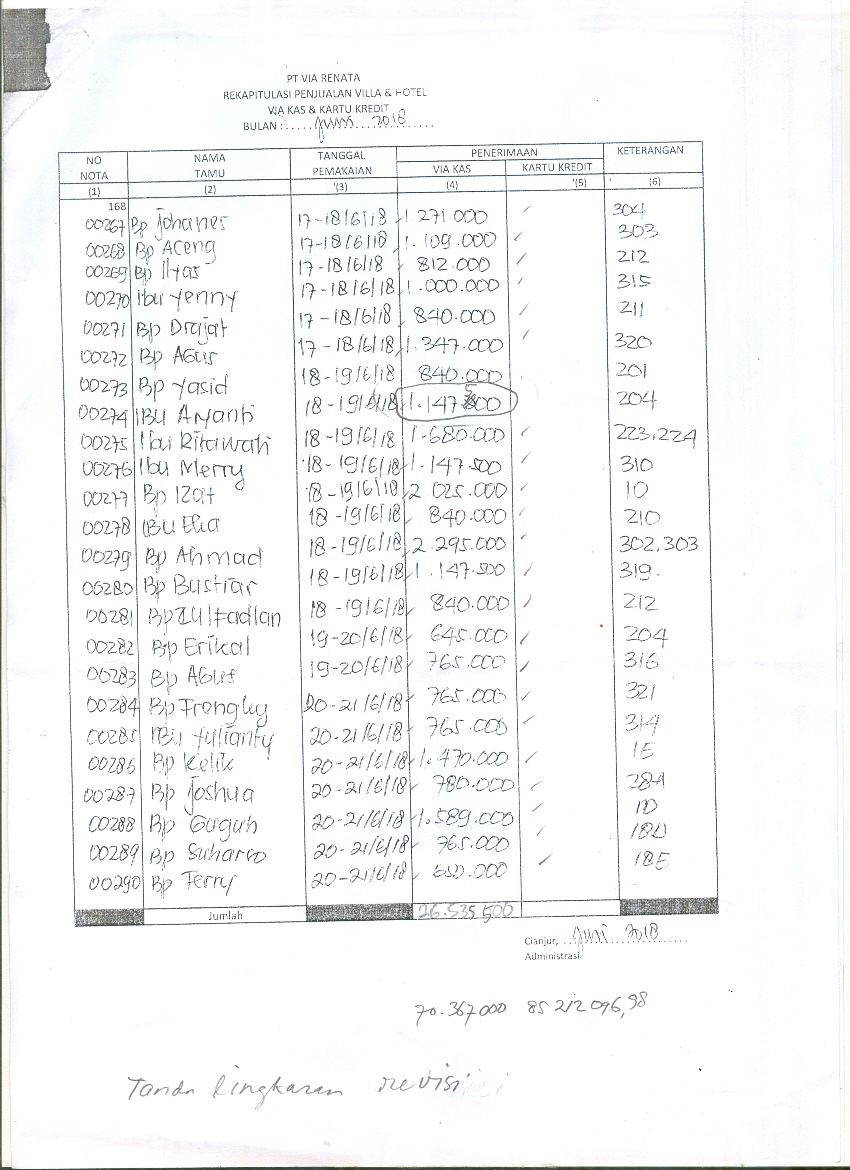 PT VIA RENATA
REKAPITULASI PENJUALAN VILLA & HOTEL
VIA KAS & KARTU KREDIT
BULAN : Juni 2018
NO NOTA NAMA TAMU TANGGAL PEMAKAIAN PENERIMAAN VIA KAS KARTU KREDIT KETERANGAN
(1) (2) '(3) (4) '(5) (6)
168
00267 Bp Johanes 17-18/6/18 1.271.000 304
00268 Bp Aceng 17-18/6/18 1.109.000 303
00269 Bp Ilyas 17-18/6/18 812.000 212
00270 Ibu Yenny 17-18/6/18 1.000.000 315
00271 Bp Drajat 17-18/6/18 840.000 211
00272 Bp Agus 17-18/6/18 1.347.000 320
00273 Bp Yasid 18-19/6/18 840.000 201
00274 IBU Aryanti 18-19/6/18 1.147.500 204
00275 Ibu Ritawati 18-19/6/18 1.680.000 223.224
00276 Ibu Merry 18-19/6/18 1.147.500 310
00277 Bp Izat 18-19/6/18 2.025.000 10
00278 IBU Elia 18-19/6/18 840.000 210
00279 Bp Ahmad 18-19/6/18 2.295.000 302.303
00280 Bp Bustiar 18-19/6/18 1.147.500 319.
00281 Bp Zulfadlan 18-19/6/18 840.000 212
00282 Bp Erikal 19-20/6/18 645.000 204
00283 Bp Agus 19-20/6/18 765.000 316
00284 Bp Frengky 20-21/6/18 765.000 321
00285 IBU Yulianty 20-21/6/18 765.000 314
00286 Bp Kelik 20-21/6/18 1.470.000 1E
00287 Bp Joshua 20-21/6/18 780.000 28A
00288 Bp Guguh 20-21/6/18 1.589.000 1D
00289 Bp Suharso 20-21/6/18 765.000 18D
00290 Bp Ferry 20-21/6/18 650.000 18E
Jumlah 26.535.500
Cianjur, Juni 2018
Administrasi
70.367.000 85 212 096,98
Tanda lingkaran revisi